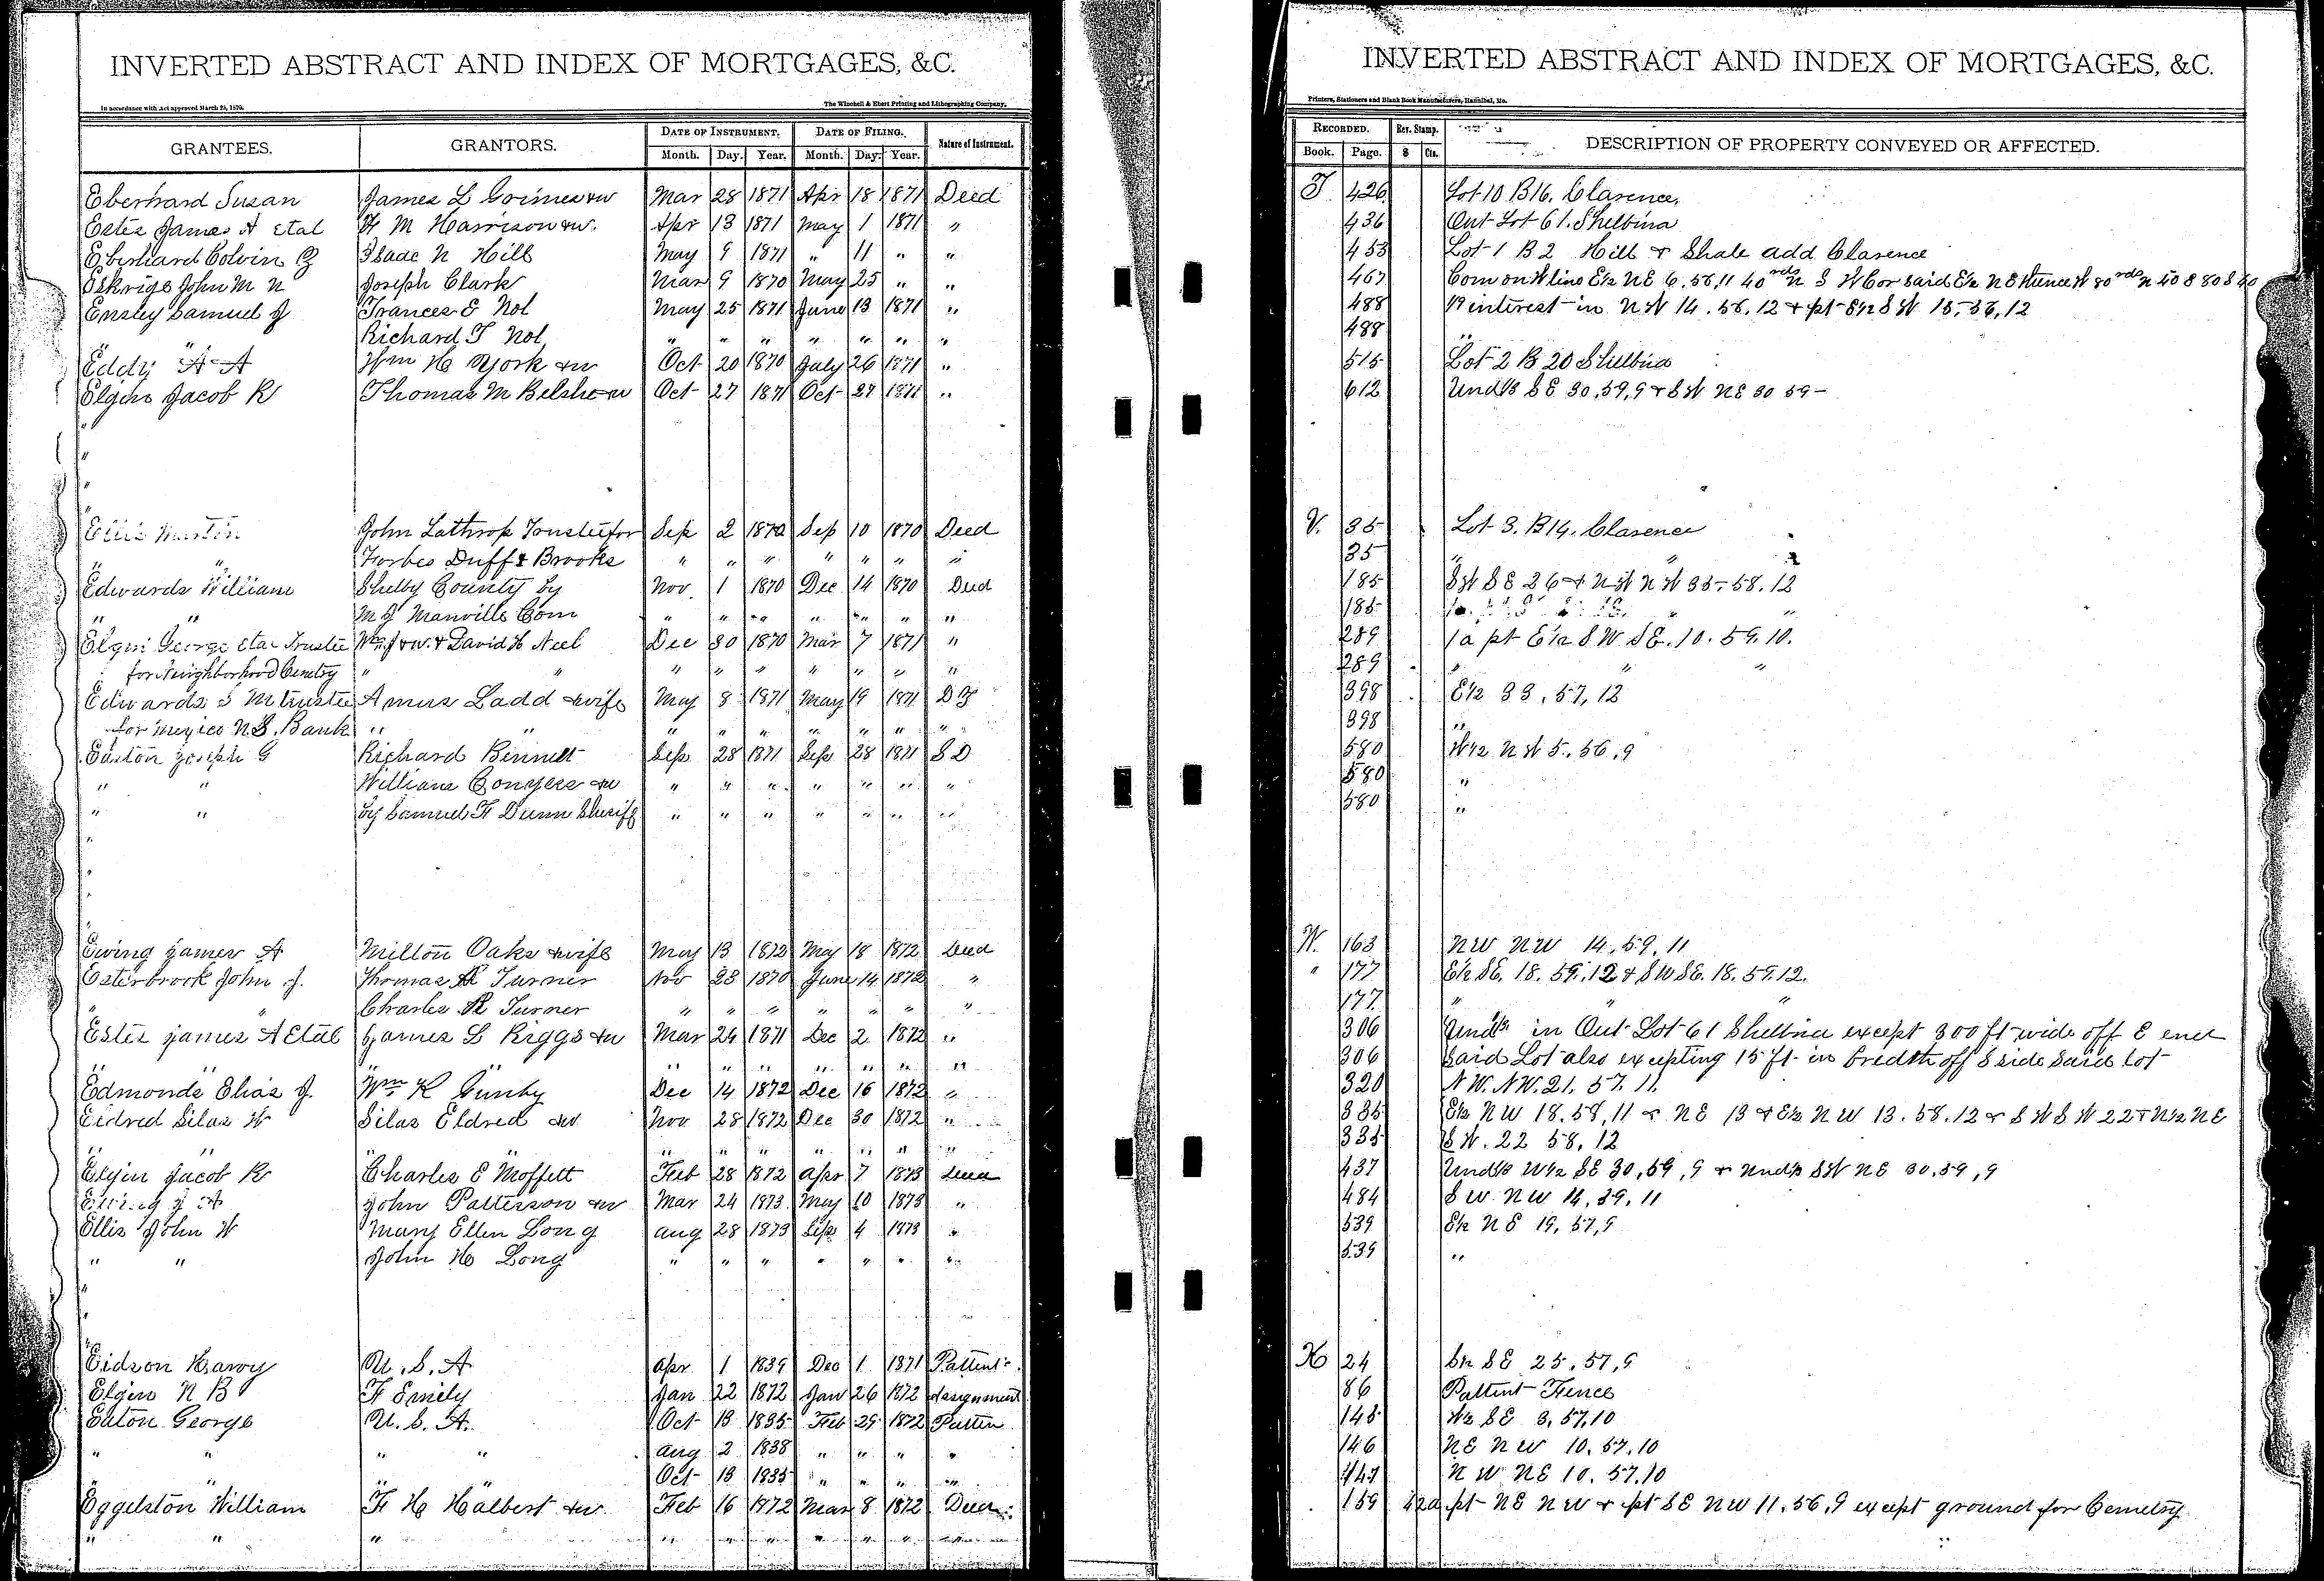 INVERTED ABSTRACT AND INDEX OF MORTGAGES, &C.
In accordance with Act approved March 25, 1870.
The Winchell & Ebert Printing and Lithographing Company,
GRANTEES. GRANTORS. DATE OF INSTRUMENT. DATE OF FILING. Nature of Instrument.
Month. Day. Year. Month. Day. Year.
Eberhard Susan James L Grimes & w Mar 28 1871 Apr 18 1871 Deed
Estes James A etal M Harrison & w. Apr 13 1871 May 1 1871 "
Eberhard Colvin Isaac N Hill May 9 1871 " 11 " " "
Eskrige John M N Joseph Clark Mar 9 1870 May 25 " " "
Ensley Samuel J Frances E Nol May 25 1871 June 13 1871 "
" Richard T Nol " " " " " " "
Eddy A A Wm H York & w Oct 20 1870 July 26 1871 "
Elgin Jacob R Thomas M Belshe & w Oct 27 1871 Oct 27 1871 "
Ellis Martin John Lathrop Trustee for Sep 2 1870 Sep 10 1870 Deed
" " Forbes Duff & Brooks " " " " " " "
Edwards William Shelby County by Nov. 1 1870 Dec 14 1870 Deed
" " M J Manville Com " " " " " " "
Elgin George etal Trustee Wm J & w. & David H Neel Dec 30 1870 Mar 7 1871 "
for Neighborhood Cemetry " " " " " " " " "
Edwards S M trustee Amus Ladd & wife May 8 1871 May 19 1871 D
for Mexico N.S. Bank " " " " " " " " "
Easton Joseph G Richard Bennett Sep 28 1871 Sep 28 1871 S D
" " William Conyers & w " " " " " " "
" " by Samuel F Dunn Sheriff " " " " " " "
Ewing James A Milton Oaks & wife May 13 1872 May 18 1872 Deed
Esterbrook John J. Thomas R Turner Nov 23 1870 June 14 1872 "
Charles R Turner " " " " " " "
Estes James A etal James L Riggs & w Mar 24 1871 Dec 2 1872 "
" " " " " " " " "
Edmonds Elias J. Wm R Gunby Dec 14 1872 Dec 16 1872 "
Eldred Silas W Silas Eldred & w Nov 28 1872 Dec 30 1872 "
" " " " " " " " "
Elgin Jacob R Charles E Moffett Feb 28 1872 Apr 7 1873 Deed
John Patterson & w Mar 24 1873 May 10 1873 "
Ellis John W Mary Ellen Long Aug 28 1873 Sep 4 1873 "
" " John H Long " " " " " " "
Eidson Harvy U.S.A Apr 1 1839 Dec 1 1871 Pattent
Elgin N B F Emily Jan 22 1872 Jan 26 1872 Assignment
Eaton George U.S.A. Oct 13 1835 Feb 29 1872 Patten
" " " " Aug 2 1838 " " " "
" " Oct 13 1835 " " " "
Eggelston William F H Halbert & w Feb 16 1872 Mar 8 1872 Deed
" " " " " " " " "
INVERTED ABSTRACT AND INDEX OF MORTGAGES, &C.
Printers, Stationers and Blank Book Manufacturers, Hannibal, Mo.
RECORDED. Rev. Stamp. DESCRIPTION OF PROPERTY CONVEYED OR AFFECTED.
Book. Page. $ Cts.
T 426 Lot 10 B16. Clarence.
436 Out Lot 61. Shelbina
453 Lot 1 B 2 Hill & Shale add Clarence
467 Com on W line E½ NE 6.58,11 40 rds N S W Cor said E½ NE thence W 80 rds N 40 E 80 S 40
488 interest in N W 14.58.12 & pt E½ S W 15.58,12
488 "
515 Lot 2 B 20 Shelbina
612 Und⅓ SE 30,59,9 & S W NE 30 59 -
V. 35 Lot 3. B14. Clarence
35 " "
185 SW SE 26 & N W N W 35-58.12
185 " "
289 1 a pt E½ S.W SE. 10. 59.10.
289 " " "
398 E½ 33, 57, 12
398 "
580 W½ N W 5. 56, 9
580 "
580 "
W. 163 NW NW 14, 59, 11
" 177 E½ SE. 18. 59. 12 & SW SE. 18. 59.12.
177 " " "
306 Und½ in Out Lot 61 Shelbina except 300 ft wide off E end
306 said Lot also excepting 15 ft in bredth off S side said lot
320 N W. NW. 21. 57. 11.
335 E½ NW 18.58,11 & NE 13 & E½ NW 13.58.12 & S W S W 22 & N½ NE
335 S W. 22 58, 12
437 Und⅓ W½ SE 30,59,9 & Und⅓ SW NE 30,59,9
484 S W NW 14, 59, 11
539 E½ NE 19, 57, 9
539 "
X 24 E½ SE 25, 57, 9
86 Pattent Fence
145 W½ SE 3, 57, 10
146 NE NW 10, 57, 10
147 N W NE 10, 57, 10
159 pt NE NW & pt SE NW 11, 56, 9 except ground for Cemetry